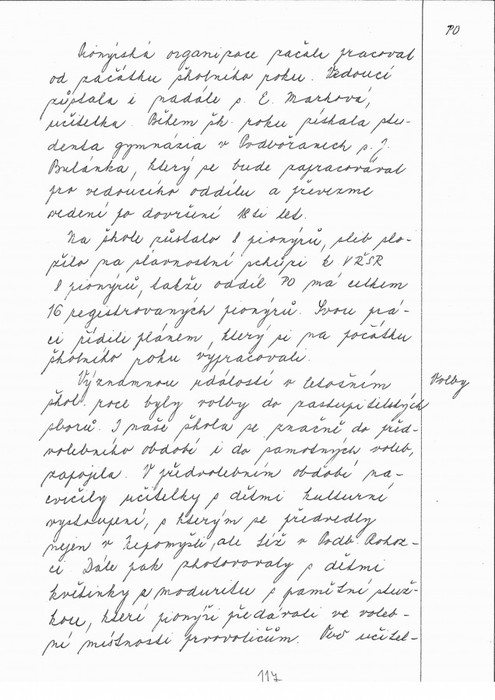 PO
Pionýrská organizace začala pracovat
od začátku školního roku. Vedoucí
zůstala i nadále s. E. Marková,
učitelka. Během šk. roku získala stu-
denta gymnásia v Podbořanech s. J.
Bulánka, který se bude zapracovávat
pro vedoucího oddílu a převezme
vedení po dovršení 18ti let.
Na škole zůstalo 8 pionýrů, slib slo-
žilo na slavnostní schůzi k VŘSR
8 pionýrů, takže oddíl PO má celkem
16 registrovaných pionýrů. Svou prá-
ci řídili plánem, který si na počátku
školního roku vypracovali.
Volby
Významnou událostí v letošním
škol. roce byly volby do zastupitelských
sborů. I naše škola se značně do před-
volebního období i do samotných voleb,
zapojila. V předvolebním období na-
cvičily učitelky s dětmi kulturní
vystoupení, s kterým se předvedly
nejen v Nepomyšli, ale též v Podb. Rohoz-
ci. Dále pak zhotovovaly s dětmi
květinky z moduritu s pamětní stuž-
kou, které pionýři předávali ve voleb-
ní místnosti prvovoličům. Obě učitel-
117